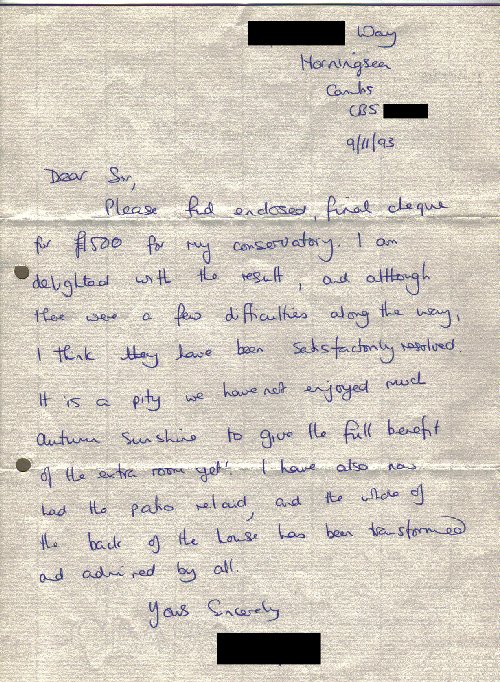 Way
Horningsea
Cambs
CB5
9/11/93
Dear Sir,
Please find enclosed, final cheque
for £1500 for my conservatory. I am
delighted with the result, and although
there were a few difficulties along the way,
I think they have been satisfactorily resolved.
It is a pity we have not enjoyed much
autumn sunshine to give the full benefit
of the extra room yet! I have also now
had the patio relaid, and the whole of
the back of the house has been transformed
and admired by all.
Yours Sincerely